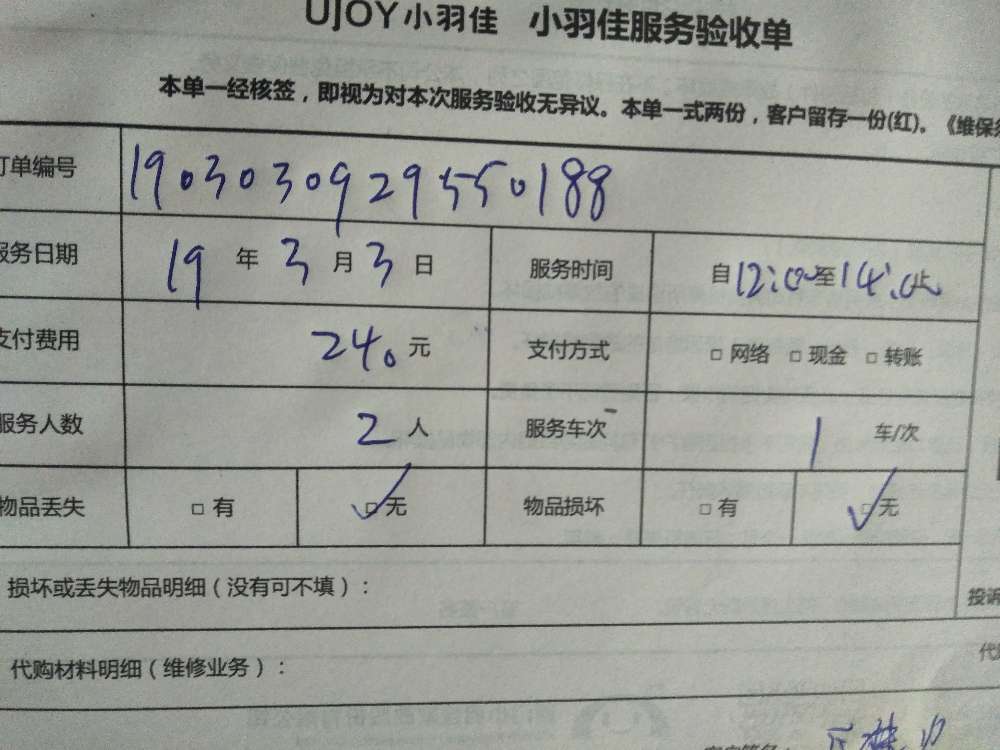 UJOY小羽佳 小羽佳服务验收单
本单一经核签，即视为对本次服务验收无异议。本单一式两份，客户留存一份(红)。《维保
订单编号 1903030929550188
服务日期 19 年 3 月 3 日 服务时间 自12:00至14:00止
支付费用 240 元 支付方式 □ 网络 □ 现金 □ 转账
服务人数 2 人 服务车次 1 车/次
物品丢失 □ 有 ☑ 无 物品损坏 □ 有 ☑ 无
损坏或丢失物品明细（没有可不填）：
投诉
代购材料明细（维修业务）：